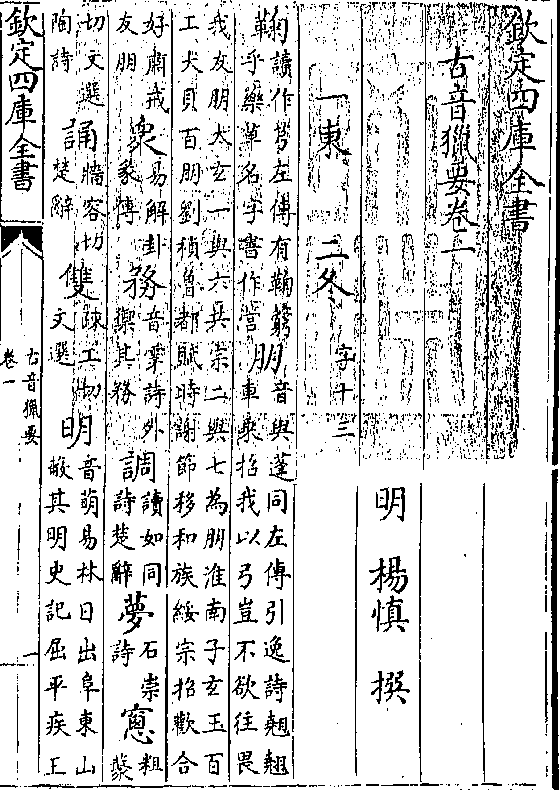 欽定四庫全書
古音獵要卷一
明 楊慎 撰
一東 二冬 字十三
鞠讀作芎左傳有鞠窮乎藥草名字書作营朋音與蓬同左傳引逸詩翹翹車乘招我以弓豈不欲往畏
我友朋太玄一與六共宗二與七為朋淮南子玄玉百工大貝百朋劉楨魯都賦時謝節移和族綏宗招歡合
好肅戒友朋衆易解卦彖傳務音蒙詩外禦其務調讀如同詩楚辭夢石崇詩窻粗叢
切文選陶詩誦牆容切楚辭雙疎工切文選明音萌易林日出阜東山蔽其明史記屈平疾王
欽定四庫全書
古音獵要
卷一
一